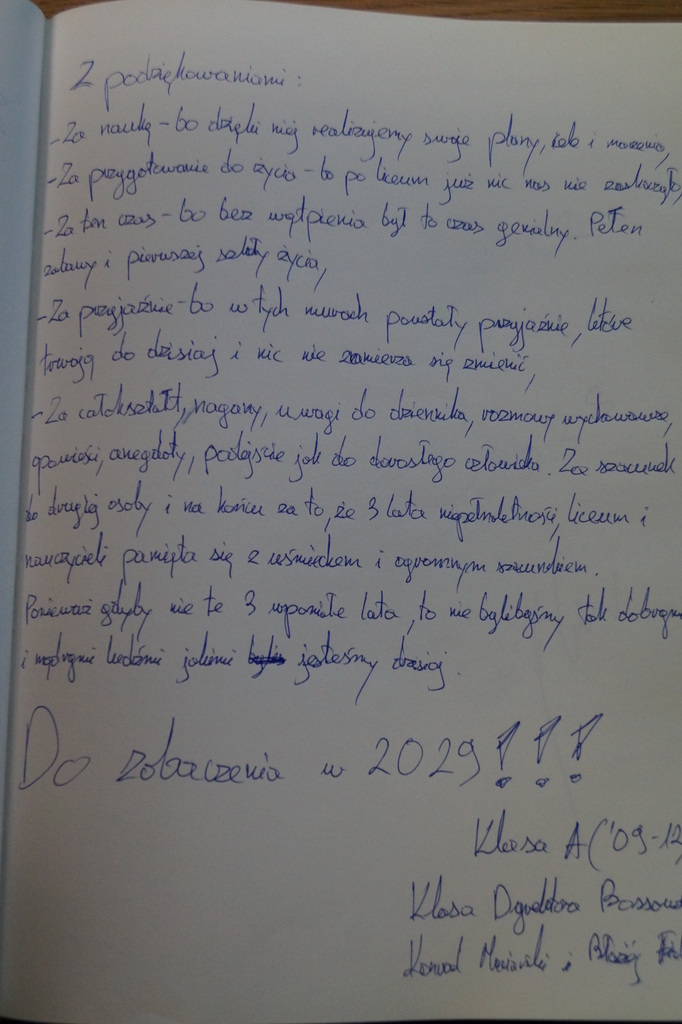 Z podziękowaniami:
-Za naukę - bo dzięki niej realizujemy swoje plany, cele i marzenia,
-Za przygotowanie do życia - bo po liceum już nic nas nie zaskoczyło,
-Za ten czas - bo bez wątpienia był to czas genialny. Pełen
zabawy i pierwszej szkoły życia,
-Za przyjaźnie - bo w tych murach powstały przyjaźnie, które
trwają do dzisiaj i nic nie zamierza się zmienić,
-Za całokształt, nagany, uwagi do dziennika, rozmowy wychowawcze,
opowieści, anegdoty, podejście jak do dorosłego człowieka. Za szacunek
do drugiej osoby i na końcu za to, że 3 lata niepełnoletności, liceum i
nauczycieli pamięta się z uśmiechem i ogromnym szacunkiem.
Ponieważ gdyby nie te 3 wspaniałe lata, to nie bylibyśmy tak dobrymi
i mądrymi ludźmi jakimi jesteśmy dzisiaj.
Do zobaczenia w 2029!!!
Klasa A ('09-12
Klasa Dyrektora
Konrad i Błażej